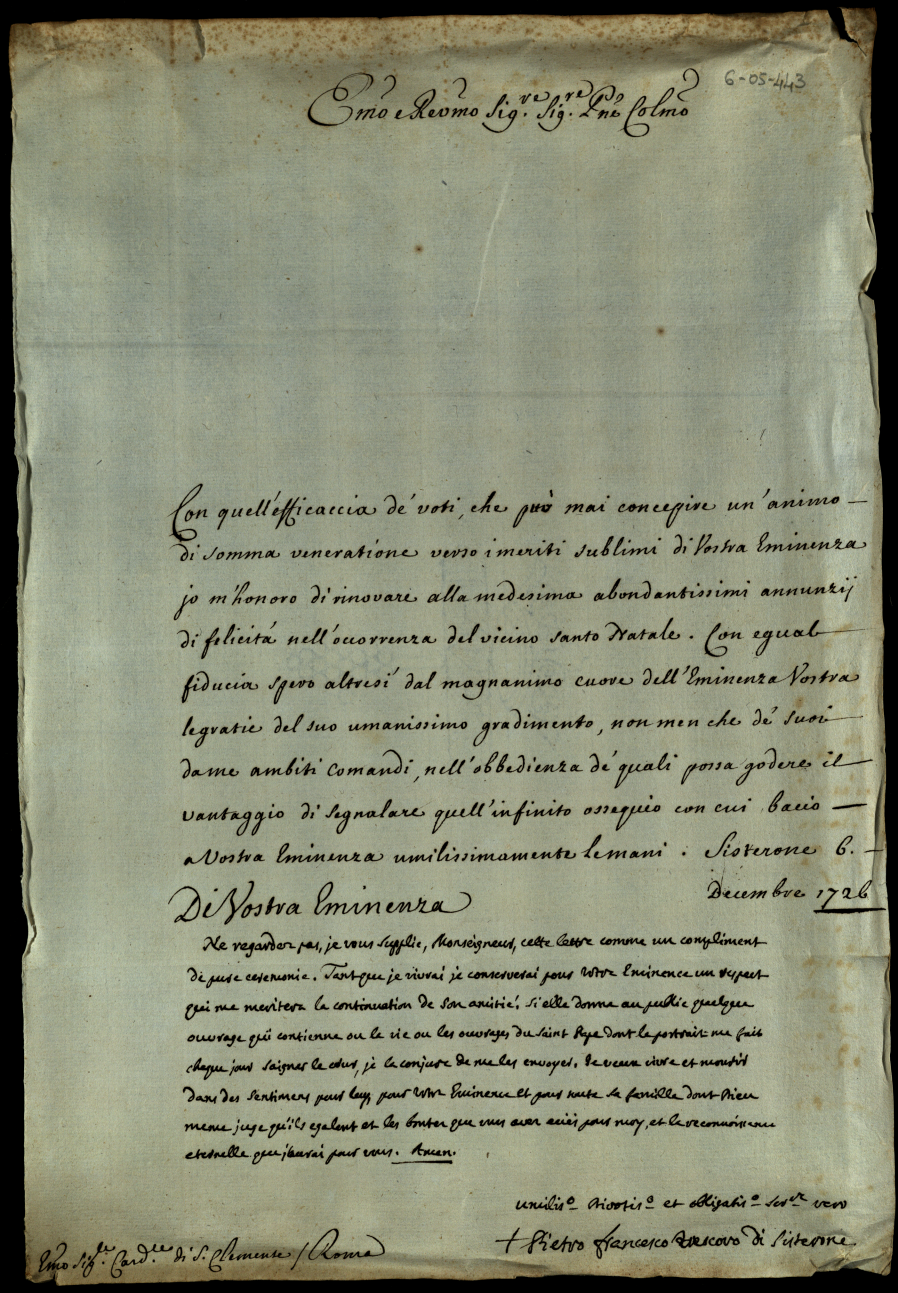 6-05-443
Emo e Revmo Sig.re Sig.re Pne Colmo
Con quell'efficaccia de' voti, che può mai concepire un'animo
di somma veneratione verso i meriti sublimi di Vostra Eminenza
jo m'honoro di rinovare alla medesima abondantissimi annunzij
di felicitá nell'ocorrenza del vicino santo Natale. Con egual
fiducia spero altresí dal magnanimo cuore dell'Eminenza Vostra
le gratie del suo umanissimo gradimento, non men che de' suoi
da me ambiti comandi, nell'obbedienza de' quali possa godere il
vantaggio di segnalare quell'infinito ossequio con cui bacio
a Vostra Eminenza umilissimamente le mani. Sisterone 6.
Decembre 1726
Di Vostra Eminenza
Ne regardez pas, je vous supplie, Monseigneur, cette lettre comme un compliment
de pure ceremonie. Tant que je vivrai je conserverai pour votre Eminence un respect
qui me meritera la continuation de son amitié. Si elle donne au public quelque
ouvrage qui contienne ou la vie ou les ouvrages du Saint Pape dont le portrait me fait
chaque jour saigner le cœur, je la conjure de me les envoyer. Je veux vivre et mourir
dans des sentimens pour luy, pour votre Eminence et pour toute sa famille dont Dieu
meme juge qu'ils egalent et les bontez que vous avez eües pour moy, et la reconnoissance
eternelle que j'aurai pour vous. Amen.
umilis.o divotis.o et obligatis.o ser.re vero
+ Pietro Francesco Vescovo di Sisterone
Emo Sig.re Card.le di S. Clemente / Roma